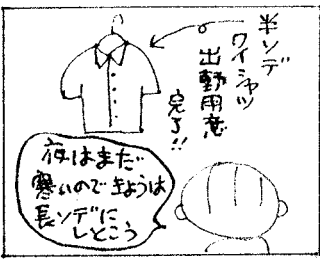 半ソデ
ワイシャツ
出勤用意
完了!!
夜はまだ
寒いのできょうは
長ソデに
しとこう